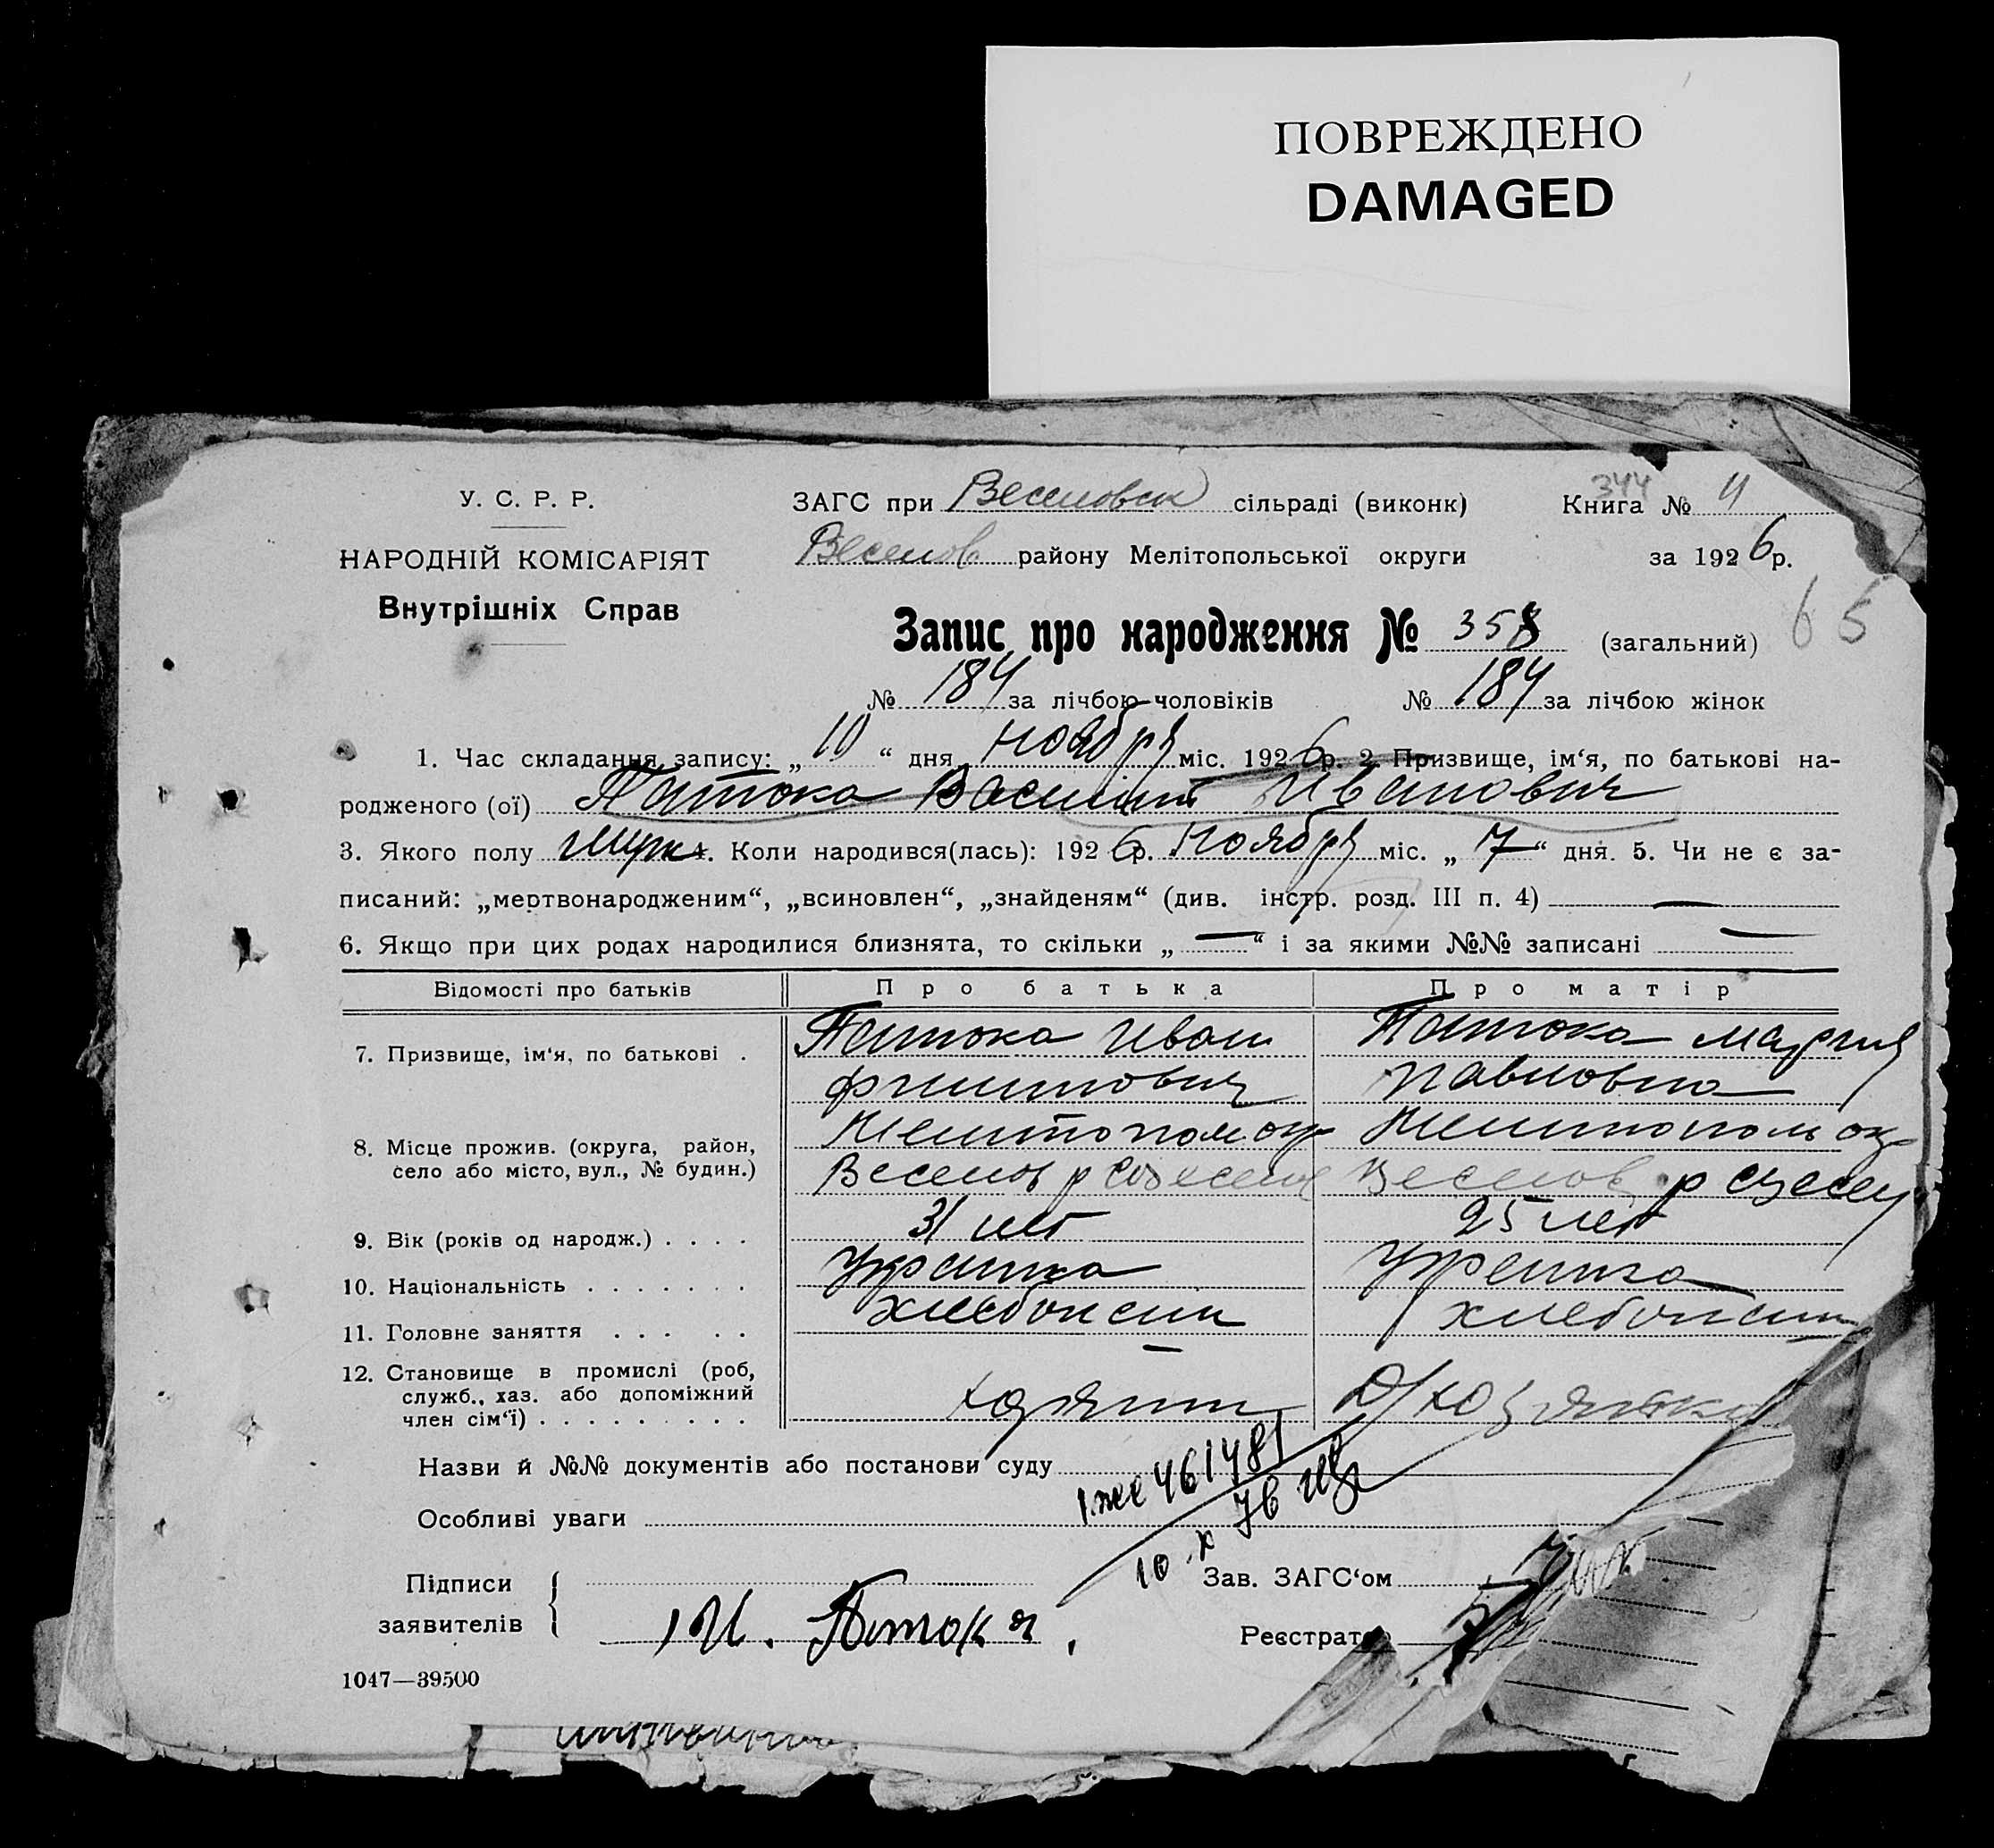 ПОВРЕЖДЕНО
DAMAGED
У. С. Р. Р.
ЗАГС при Веселовск сільраді (виконк)
344
Книга № 4
НАРОДНІЙ КОМІСАРІЯТ
Веселов району Мелітопольської округи
за 1926 р.
Внутрішніх Справ
65
Запис про народження № 358 (загальний)
№ 184 за лічбою чоловіків № 184 за лічбою жінок
1. Час складання запису: „10“ дня ноября міс. 1926 р. 2. Призвище, ім‘я, по батькові на-
родженого (ої) Патока Василий Иванович
3. Якого полу муж 4. Коли народився(лась): 1926 р. Ноября міс. „7“ дня. 5. Чи не є за-
писаний: „мертвонародженим“, „всиновлен“, „знайденям“ (див. інстр. розд. III п. 4) —
6. Якщо при цих родах народилися близнята, то скільки „—“ і за якими №№ записані —
Відомості про батьків Про батька Про матір
7. Призвище, ім‘я, по батькові . Патока Иван Патока Мария
Филипович Павловна
8. Місце прожив. (округа, район, Мелитопол ок Мелитопол ок
село або місто, вул., № будин.) Веселов р Веселов р
9. Вік (років од народж.) . . . . 31 лет 25 лет
10. Національність . . . . . . . Украинка
11. Головне заняття . . . . . хлебопаш хлебопаш
12. Становище в промислі (роб,
служб., хаз. або допоміжний
член сім‘ї) . . . . . . . . . хозяин Д/хозяйка
Назви й №№ документів або постанови суду
461481
Особливі уваги
10 X 76
Підписи
заявителів
Зав. ЗАГС‘ом
И. Патока.
Реєстрат
1047—39500